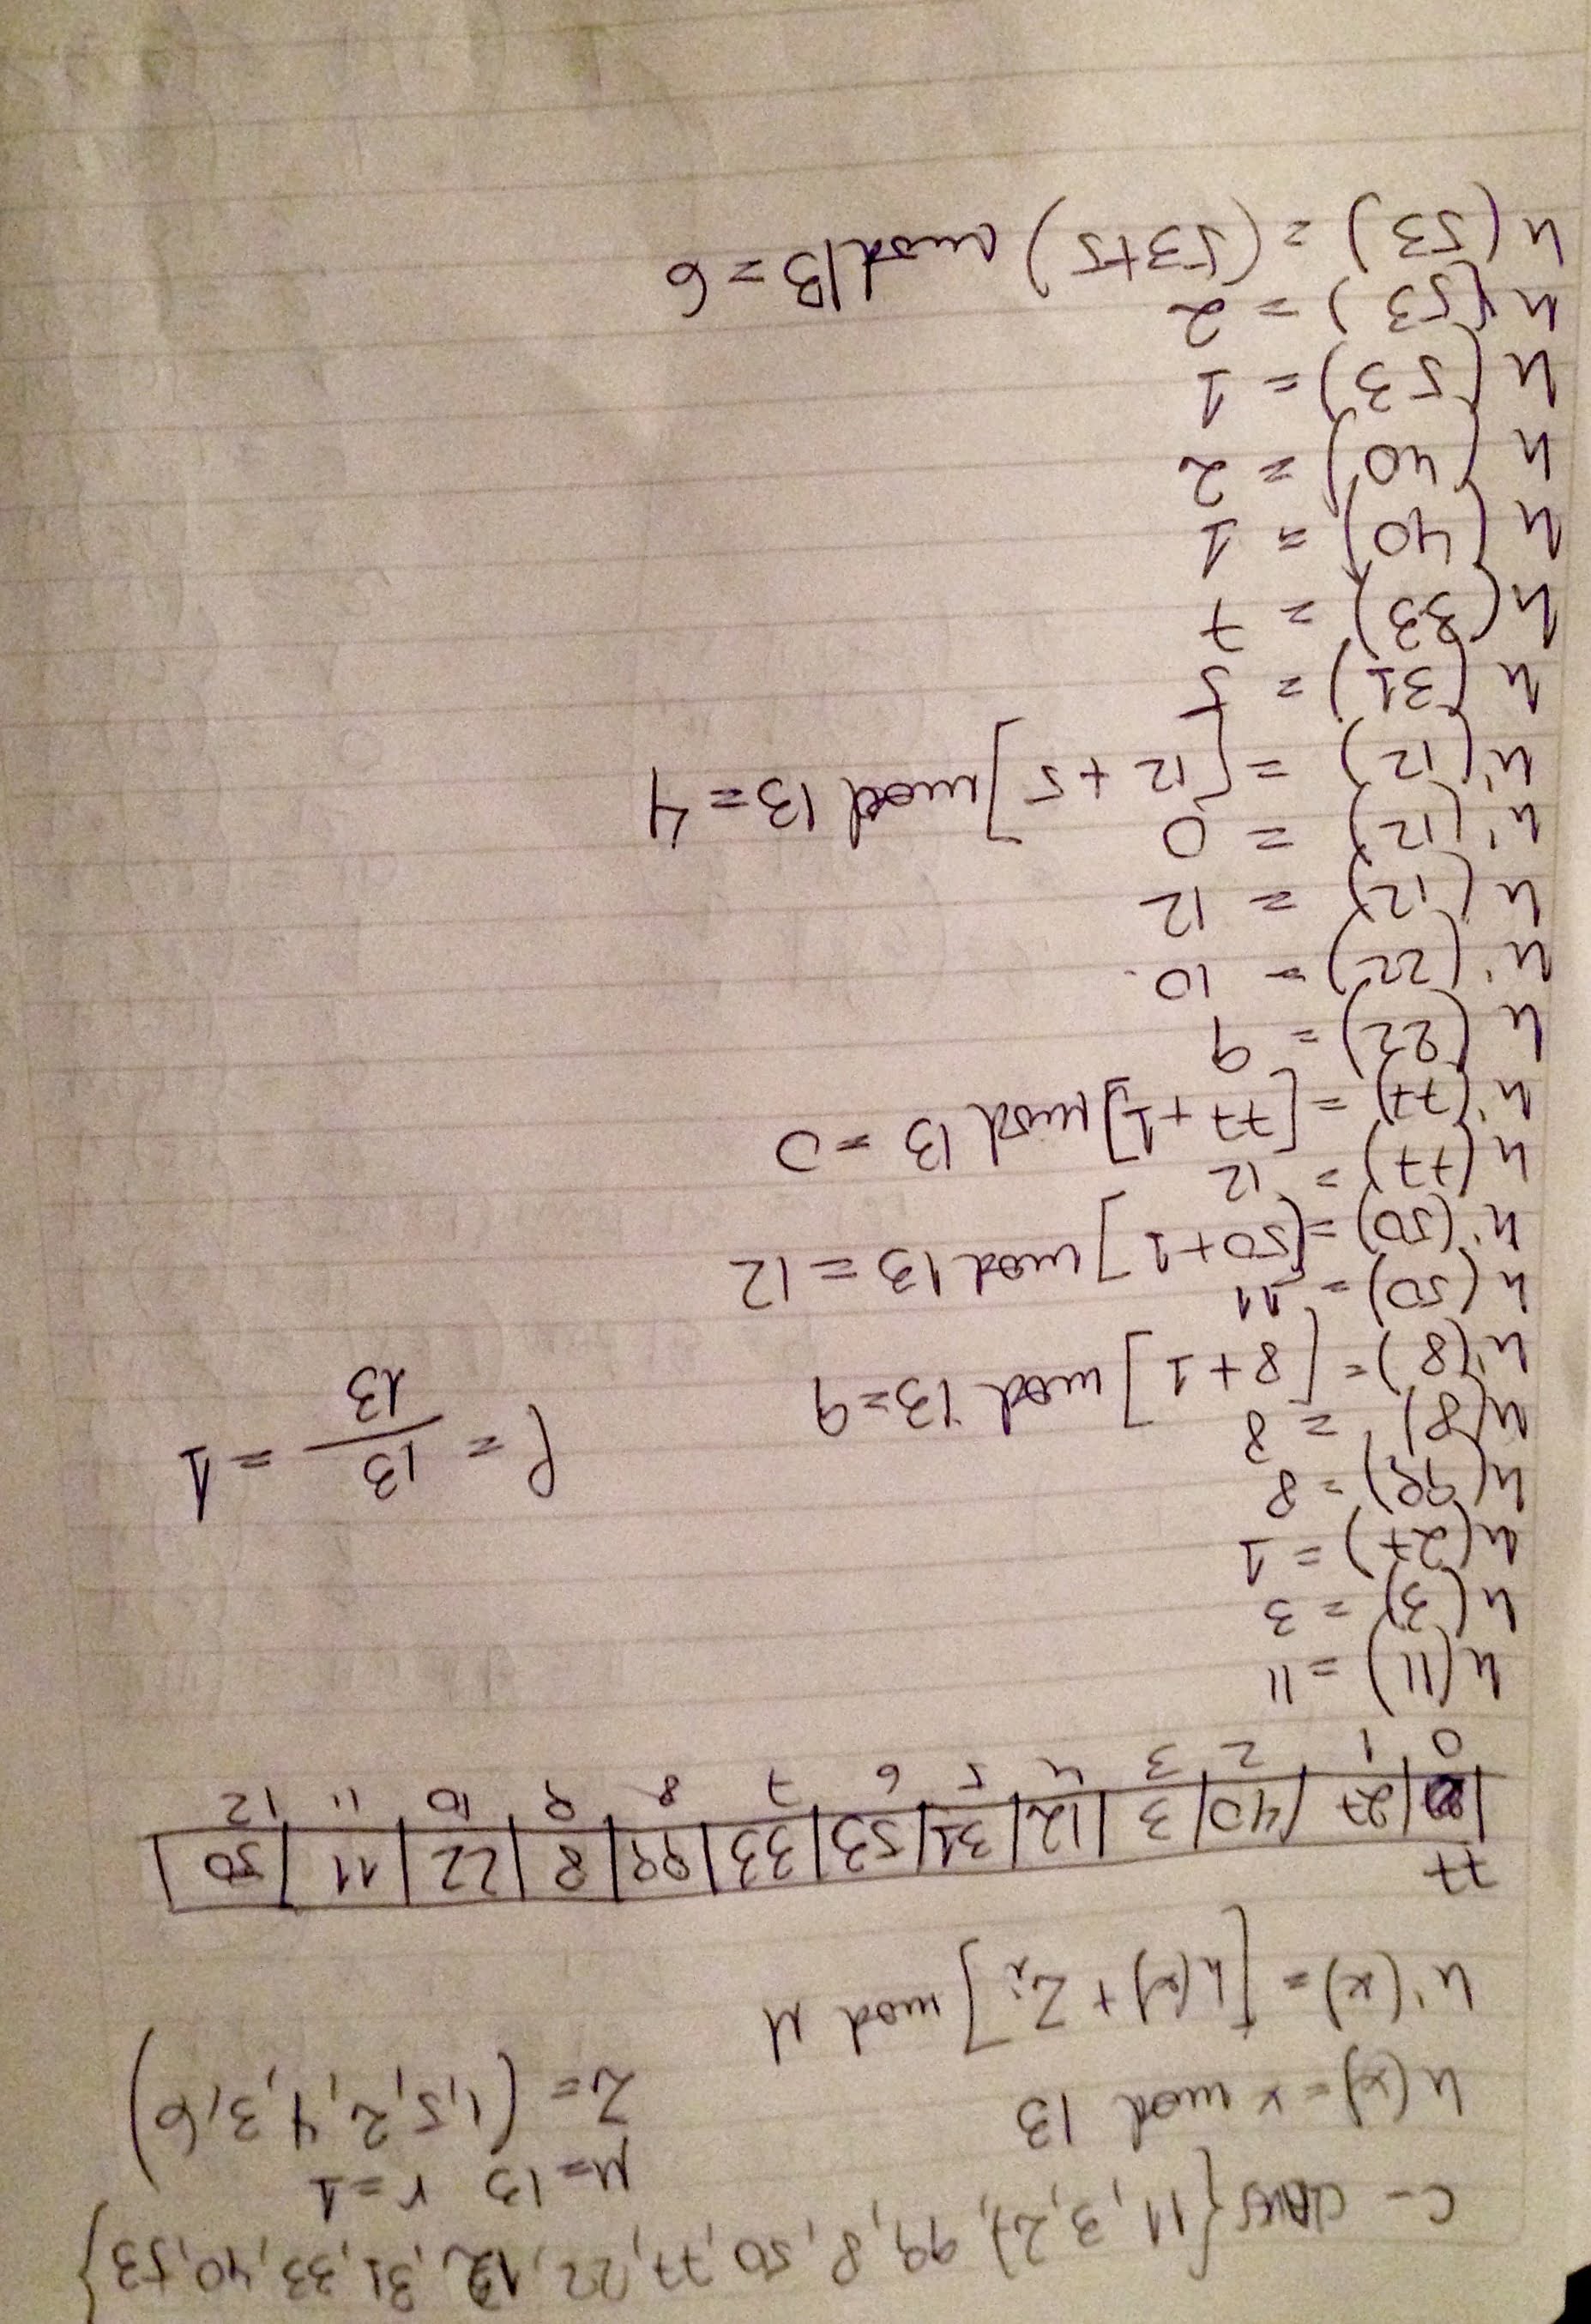 c- claves {11, 3, 27, 99, 8, 50, 77, 22, 12, 31, 33, 40, 53}
M=13 r=1
h(x)=x mod 13 Z=(1,5,2,4,3,6)
h'(x)=[h(x)+Zi] mod M
77
27 | 40 | 3 | 12 | 31 | 53 | 33 | 99 | 8 | 22 | 11 | 50
0 1 2 3 4 5 6 7 8 9 10 11 12
h(11)=11
h(3)=3
h(27)=1
h(99)=8
h(8)=8
h'(8)=[8+1] mod 13=9
ρ=13/13=1
h(50)=11
h'(50)=[50+1] mod 13=12
h(77)=12
h'(77)=[77+1] mod 13=0
h(22)=9
h'(22)=10
h(12)=12
h'(12)=0
h'(12)=[12+5] mod 13=4
h(31)=5
h(33)=7
h(40)=1
h(40)=2
h(53)=1
h(53)=2
h(53)=(53+5) mod 13=6